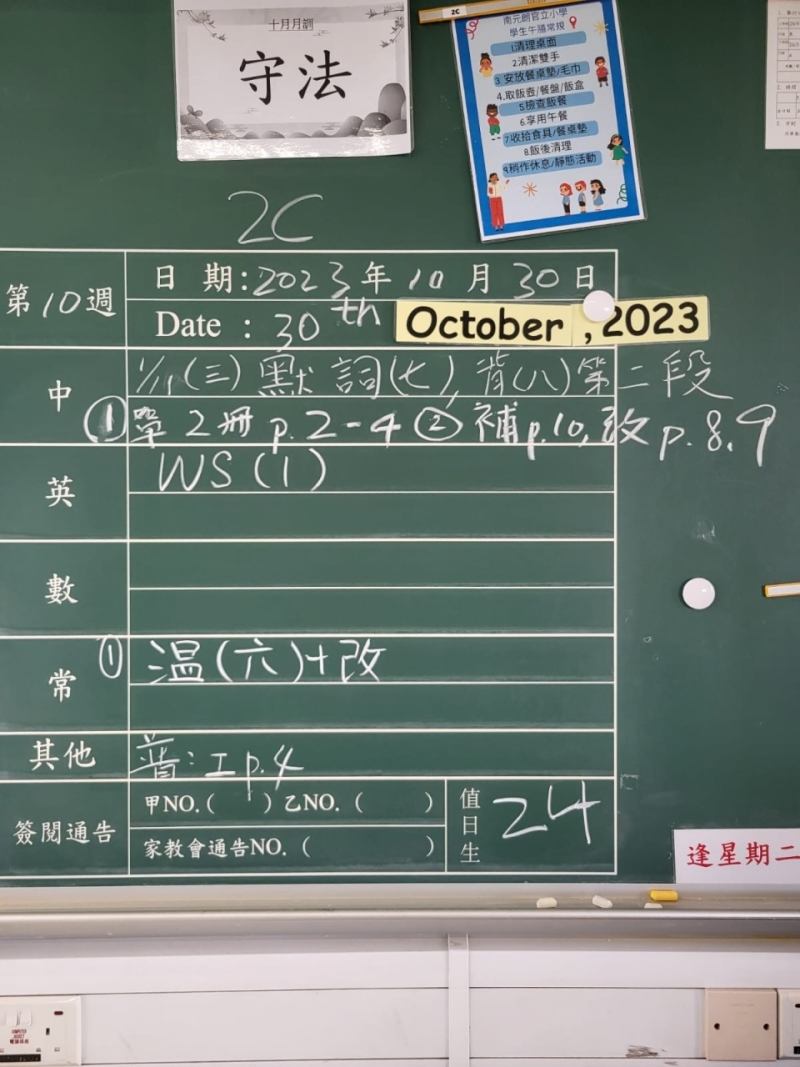 十月月訓
守法
2C
南元朗官立小學
學生午膳常規
1清理桌面
2清潔雙手
3.安放餐桌墊/毛巾
4.取飯壺/餐盤/飯盒
5檢查飯餐
6.享用午餐
7收拾食具/餐桌墊
8.飯後清理
9.稍作休息/靜態活動
2C
第10週
日 期:2023年10月30日
Date : 30th October , 2023
中
1/11(三)默詞(七),背(八)第二段
①單2冊 p.2-4 ②補p.10,改p.8,9
英
WS(1)
數
常
① 溫(六)+改
其他
普:工p.4
簽閱通告
甲NO.( )乙NO.( )
家教會通告NO.( )
值日生
24
逢星期二
COMPUTER